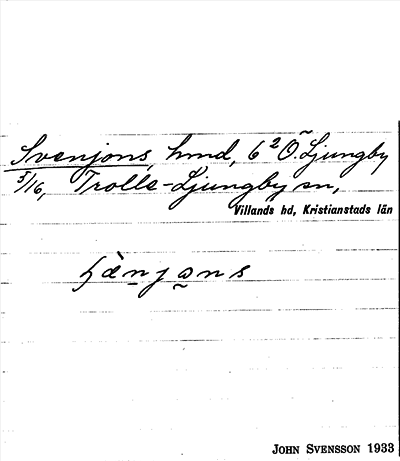 Svenjons, hmd, 6² Ö. Ljungby
5/16, Trolle-Ljungby sn,
Villands hd, Kristianstads län
sä̀njo̰ns
JOHN SVENSSON 1933